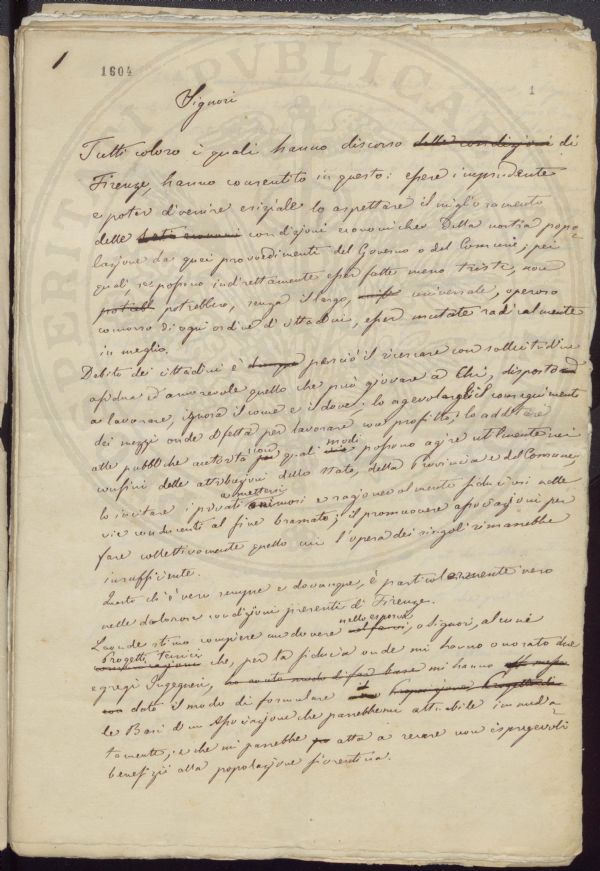 1
1604
1
Signori
Tutti coloro i quali hanno discorso delle condizioni di
Firenze, hanno consentito in questo: essere imprudente
e poter divenire esiziale lo aspettare il miglioramento
delle condizioni economiche della nostra popo-
lazione da quei provvedimenti del Governo o del Comune, pei
quali se possono indirettamente esser fatte meno tristi, non
potrebbero, senza il largo, universale, operoso
concorso di ogni ordine di cittadini, esser mutate radicalmente
in meglio.
Debito dei cittadini è perciò il ricercare con sollecitudine
assidua ed amorevole quello che può giovare a Chi, disposto
a lavorare, ignora il come e il dove; lo agevolargli il conseguimento
dei mezzi onde difetta per lavorare con profitto; lo additare
alle pubbliche autorità con quali modi possono agire utilmente nei
confini delle attribuzioni dello Stato, della Provincia e del Comune;
lo incitare i privati a mettersi animosi e ragionevolmente fiduciosi nelle
vie conducenti al fine bramato; il promuovere associazioni per
fare collettivamente quello cui l'opera dei singoli rimarrebbe
insufficiente.
Questo ch'è vero sempre e dovunque, è particolarmente vero
nelle dolorose condizioni presenti di Firenze.
Laonde stimo compiere un dovere nello esporvi, o Signori, alcuni
Progetti tecnici che, per la fiducia onde mi hanno onorato due
egregi Ingegneri, mi hanno
dato il modo di formulare
le Basi d'un Associazione che parrebbemi attuabile immedia-
tamente, e che mi parrebbe atta a recare non ispregevoli
benefizi alla popolazione fiorentina.